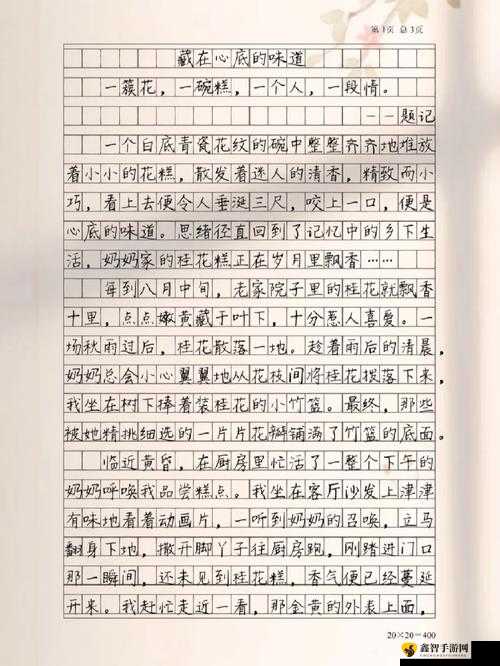 第1页 总3页
藏在心底的味道
一簇花，一碗糕，一个人，一段情。
——题记
一个白底青瓷花纹的碗中整整齐齐地堆放
着小小的花糕，散发着迷人的清香，精致而小
巧，看上去便令人垂涎三尺，咬上一口，便是
心底的味道。思绪径直回到了记忆中的乡下生
活，奶奶家的桂花糕正在岁月里飘香……
每到八月中间，老家院子里的桂花就飘香
十里，点点嫩黄藏于叶下，十分惹人喜爱。一
场秋雨过后，桂花散落一地。趁着雨后的清晨，
奶奶总会小心翼翼地从花枝间将桂花拨落下来，
我坐在树下捧着装桂花的小竹篮。最终，那些
被她精挑细选的一片片花瓣铺满了竹篮的底面。
临近黄昏，在厨房里忙活了一整个下午的
奶奶呼唤我品尝糕点。我坐在客厅沙发上津津
有味地看着动画片，一听到奶奶的召唤，立马
翻身下地，撒开脚丫子往厨房跑，刚踏进门口
那一瞬间，还未见到桂花糕，香气便已经蔓延
开来。我赶忙走近一看，那金黄的外表上面，
20×20=400
鑫智手游网